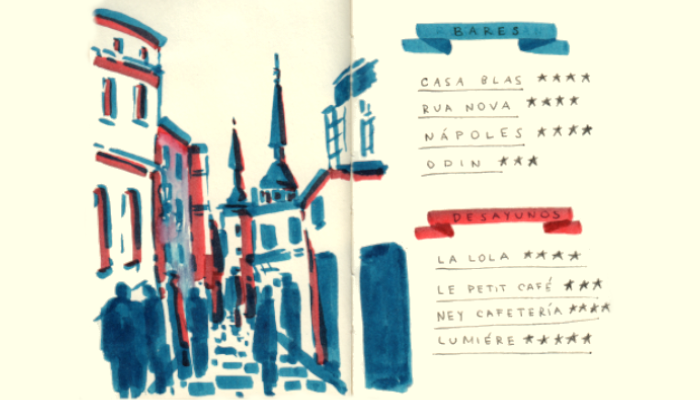 BARES
CASA BLAS ★★★★
RUA NOVA ★★★★
NÁPOLES ★★★★
ODIN ★★★
DESAYUNOS
LA LOLA ★★★★
LE PETIT CAFÉ ★★★
NEY CAFETERÍA ★★★★
LUMIÉRE ★★★★★